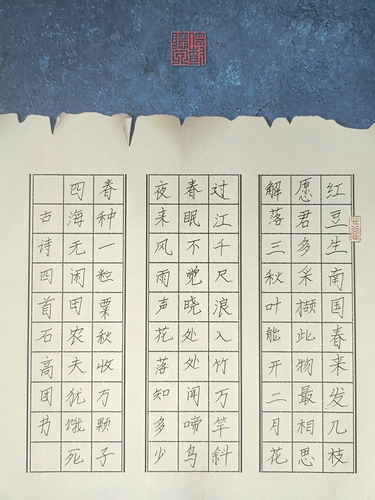 红豆生南国春来发几枝
愿君多采撷此物最相思
解落三秋叶能开二月花
过江千尺浪入竹万竿斜
春眠不觉晓处处闻啼鸟
夜来风雨声花落知多少
春种一粒粟秋收万颗子
四海无闲田农夫犹饿死
古诗四首石高团书